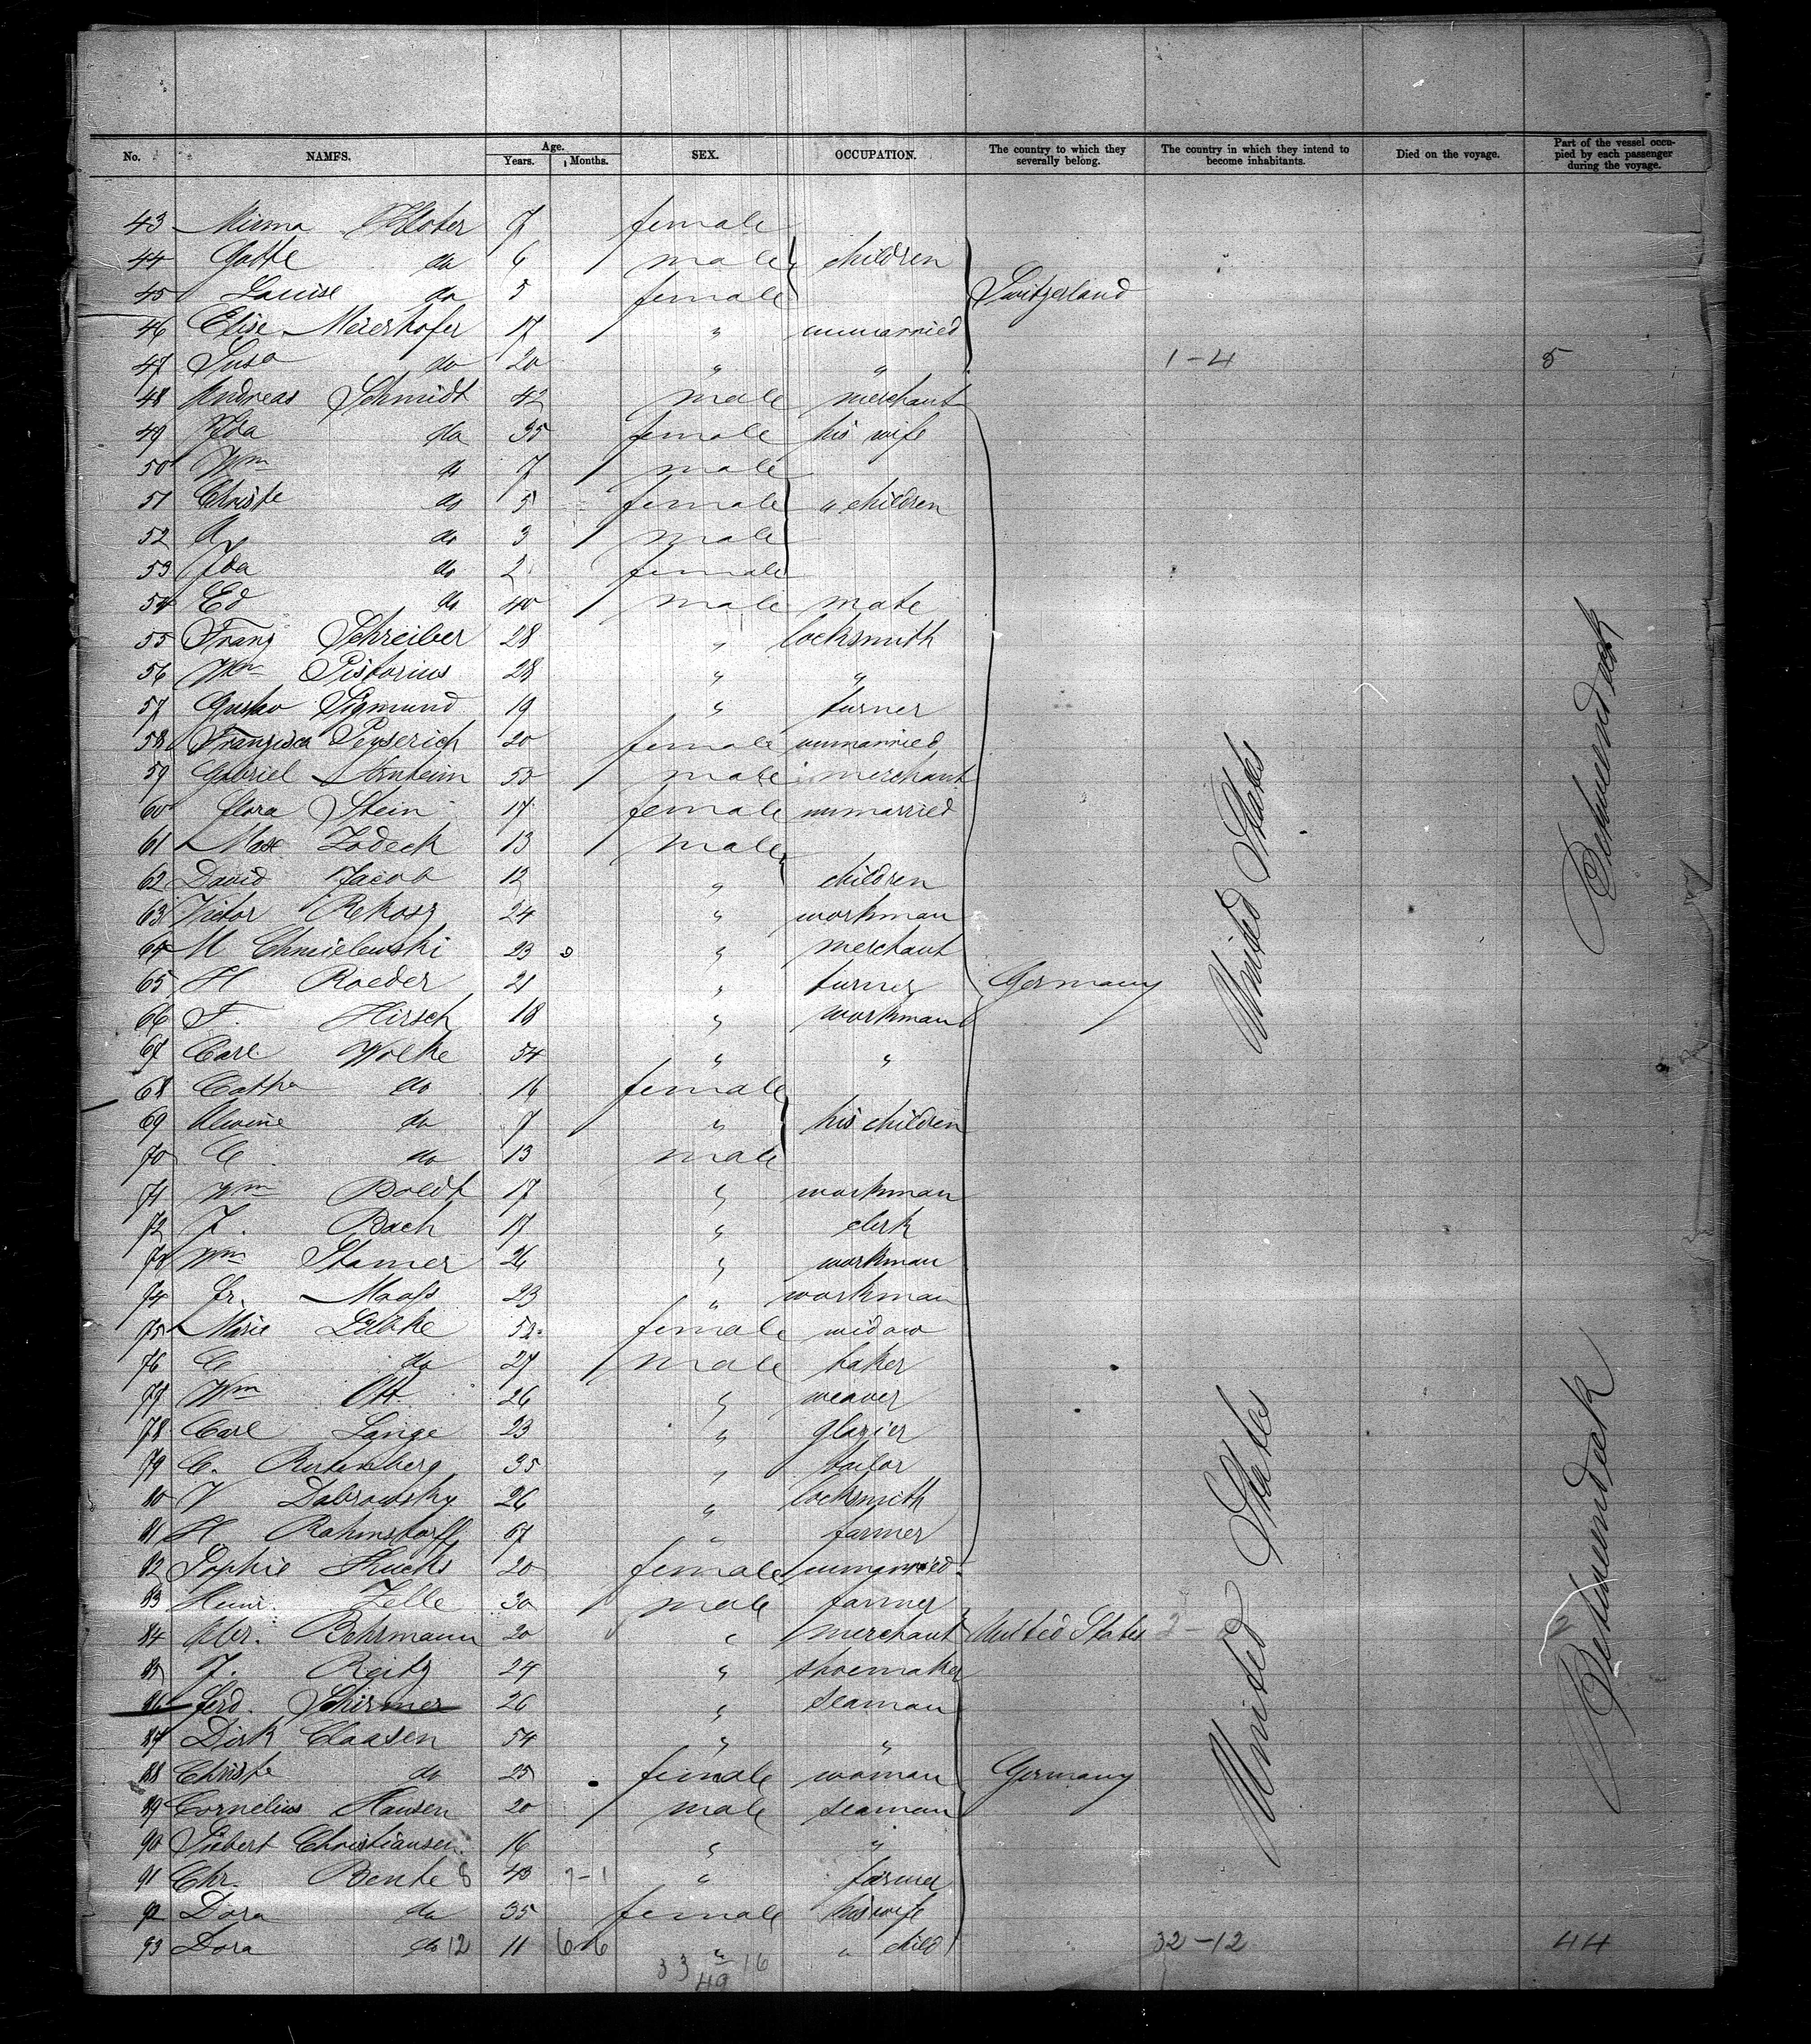 No. NAMES. Age. Years. Months. SEX. OCCUPATION. The country to which they severally belong. The country in which they intend to become inhabitants. Died on the voyage. Part of the vessel occupied by each passenger during the voyage.
43 Minna 7 female
44 do 6 male children
45 Louise do 5 female Switzerland
46 Elise Meierhofer 17 " unmarried
47 Susa do 20 " " 1-4 5
48 Andreas Schmidt 42 male merchant
49 Ida do 35 female his wife
50 Wm do 7 male
51 Christe do 5 female " children
52 A. do 3 male
53 Ida do 2 female
54 Ed do 40 male mate
55 Franz Schreiber 28 " locksmith
56 Wm Pistorius 28 " "
57 Gustav Sigmund 19 " turner
58 Franzisca Peyserich 20 female unmarried
59 Gabriel Arnheim 52 male merchant
60 Flora Stein 17 female unmarried
61 Max Zodeck 13 male
62 David Jacob 12 " children
63 Victor Rekosz 24 " workman
64 M Chmielewski 23 " merchant
65 H Roeder 21 " turner Germany United States
66 F. Hirsch 18 " workman
67 Carl Wolke 54 " "
68 Catha do 16 female
69 Alwine do 7 " his children
70 C. do 13 male
71 Wm Boldt 17 " workman
72 J. Bach 17 " clerk
73 Wm Stamer 26 " workman
74 Fr. Maass 23 " workman
75 Marie Lübke 52 female widow
76 C do 27 male baker
77 Wm Ott 26 " weaver
78 Carl Lange 23 " glazier
79 C. Rutenberg 35 " tailor
80 V Dabrowsky 26 " locksmith
81 H Rahmstorff 67 " farmer
82 Sophie 20 female unmarried
83 Heinr. Zelle 30 male farmer
84 Behrmann 20 " merchant United States 2-
85 J. Reitz 24 " shoemaker
86 Ferd. Schirmer 26 " seaman
87 Dirk Claasen 54 " "
88 Christe do 25 female woman Germany United States
89 Cornelius Hansen 20 male seaman
90 Siebert Christiansen 16 " "
91 Chr. Bente 8 43 7-1 " farmer
92 Dora do 35 female his wife
93 Dora do 12 11 6-6 " " child 32-12 44
33 16
49